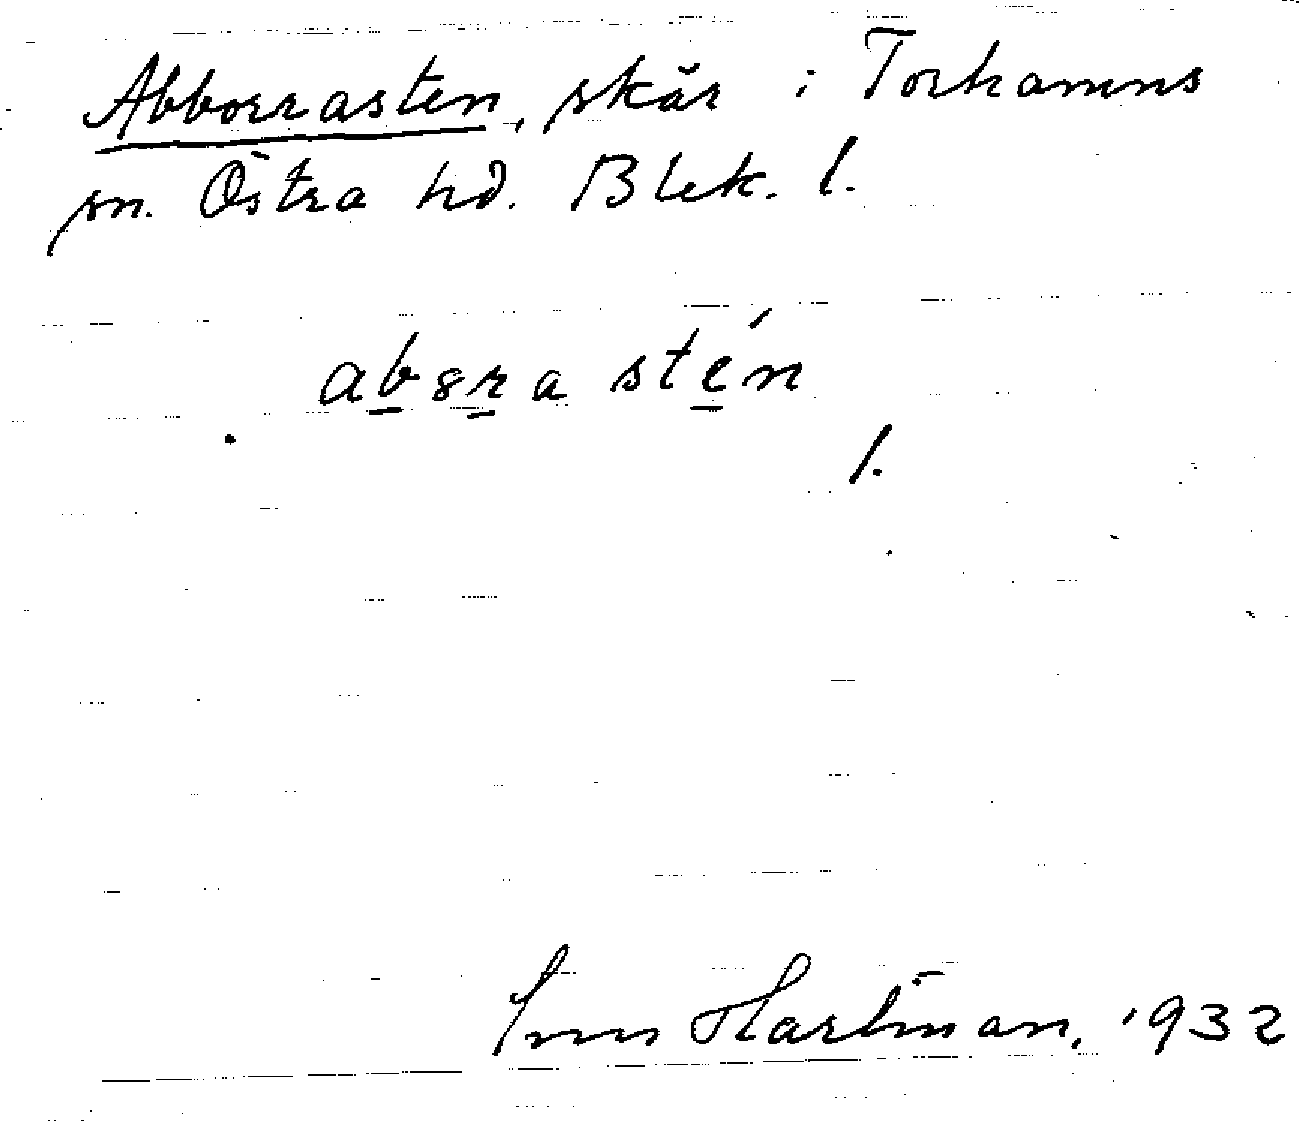 Abborrasten, skär i Torhamns
sn. Östra hd. Blek. l.
abꝏra stén
l.
Hartman, 1932